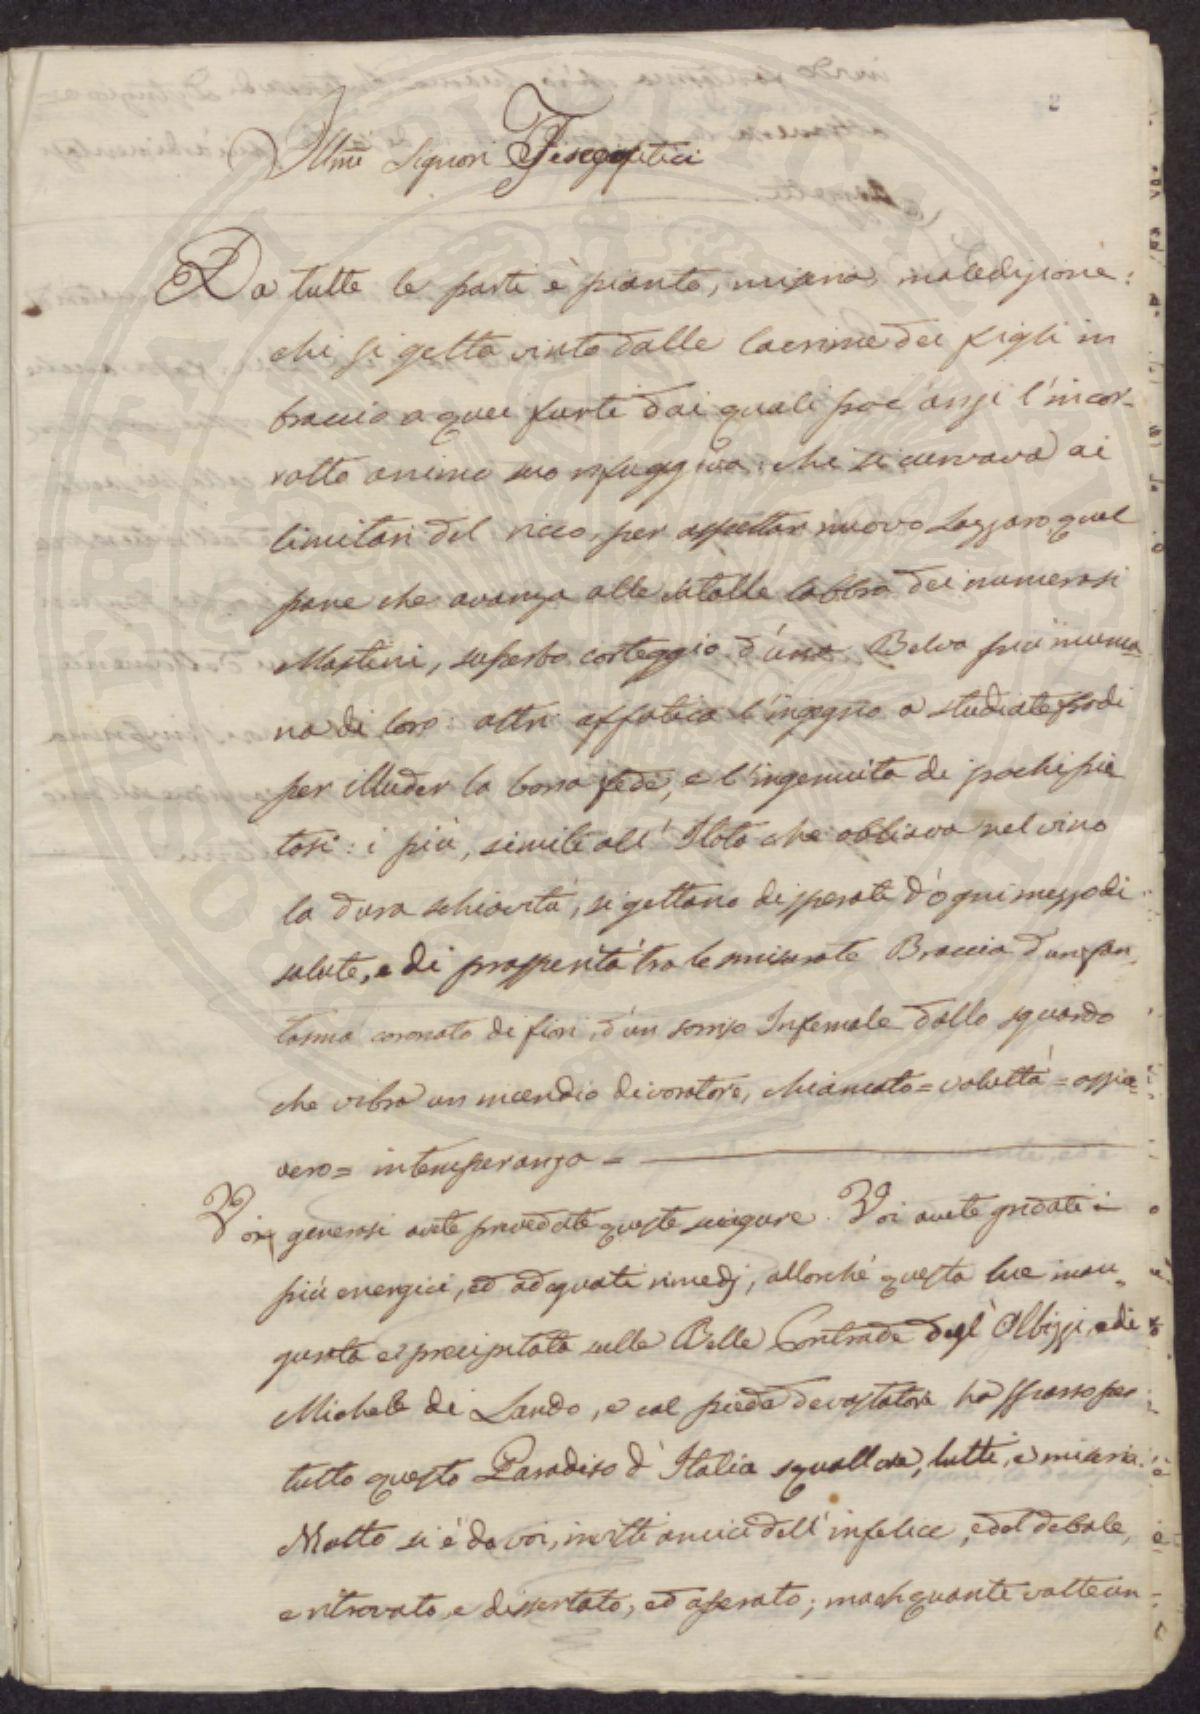 2
Illmi Signori
Da tutte le parti è pianto, miseria, maledizione:
chi si getta vinto dalle lacrime dei figli in
braccio a quei furti dai quali poc'anzi l'incor-
rotto animo suo rifuggiva: chi si curvava ai
limitari del ricco, per aspettar nuovo Lazzaro quel
pane che avanza alle satolle labbra dei numerosi
Mastini, superbo corteggio d'una Belva più inuma-
na di loro: altri affatica l'ingegno a studiate frodi
per illuder la bona fede, e l'ingenuità di pochi pie
tosi: i più, simile all'Ilota che obliava nel vino
la dura schiavitù, si gettano disperati d'ogni mezzo di
salute, e di prosperità tra le smisurate Braccia d'un fan-
tasma coronato di fiori, d'un sorriso Infernale dallo sguardo
che vibra un incendio divoratore, chiamato = voluttà = ossia-
vero = intemperanza =
Voi generosi avete prevedute queste sciagure. Voi avete gridati i
più energici, ed adeguati rimedj, allorché questa lue inau-
gurata è precipitata sulle Belle Contrade degl'Albizzi, e di
Michele di Lando, e col piede devastatore ha sparso per
tutto questo Paradiso d'Italia squallore, lutti, e miseria.
Molto si è da voi, invitti amici dell'infelice, e del debole,
e ritrovato, e dissertato, ed operato; ma oh quante volte un